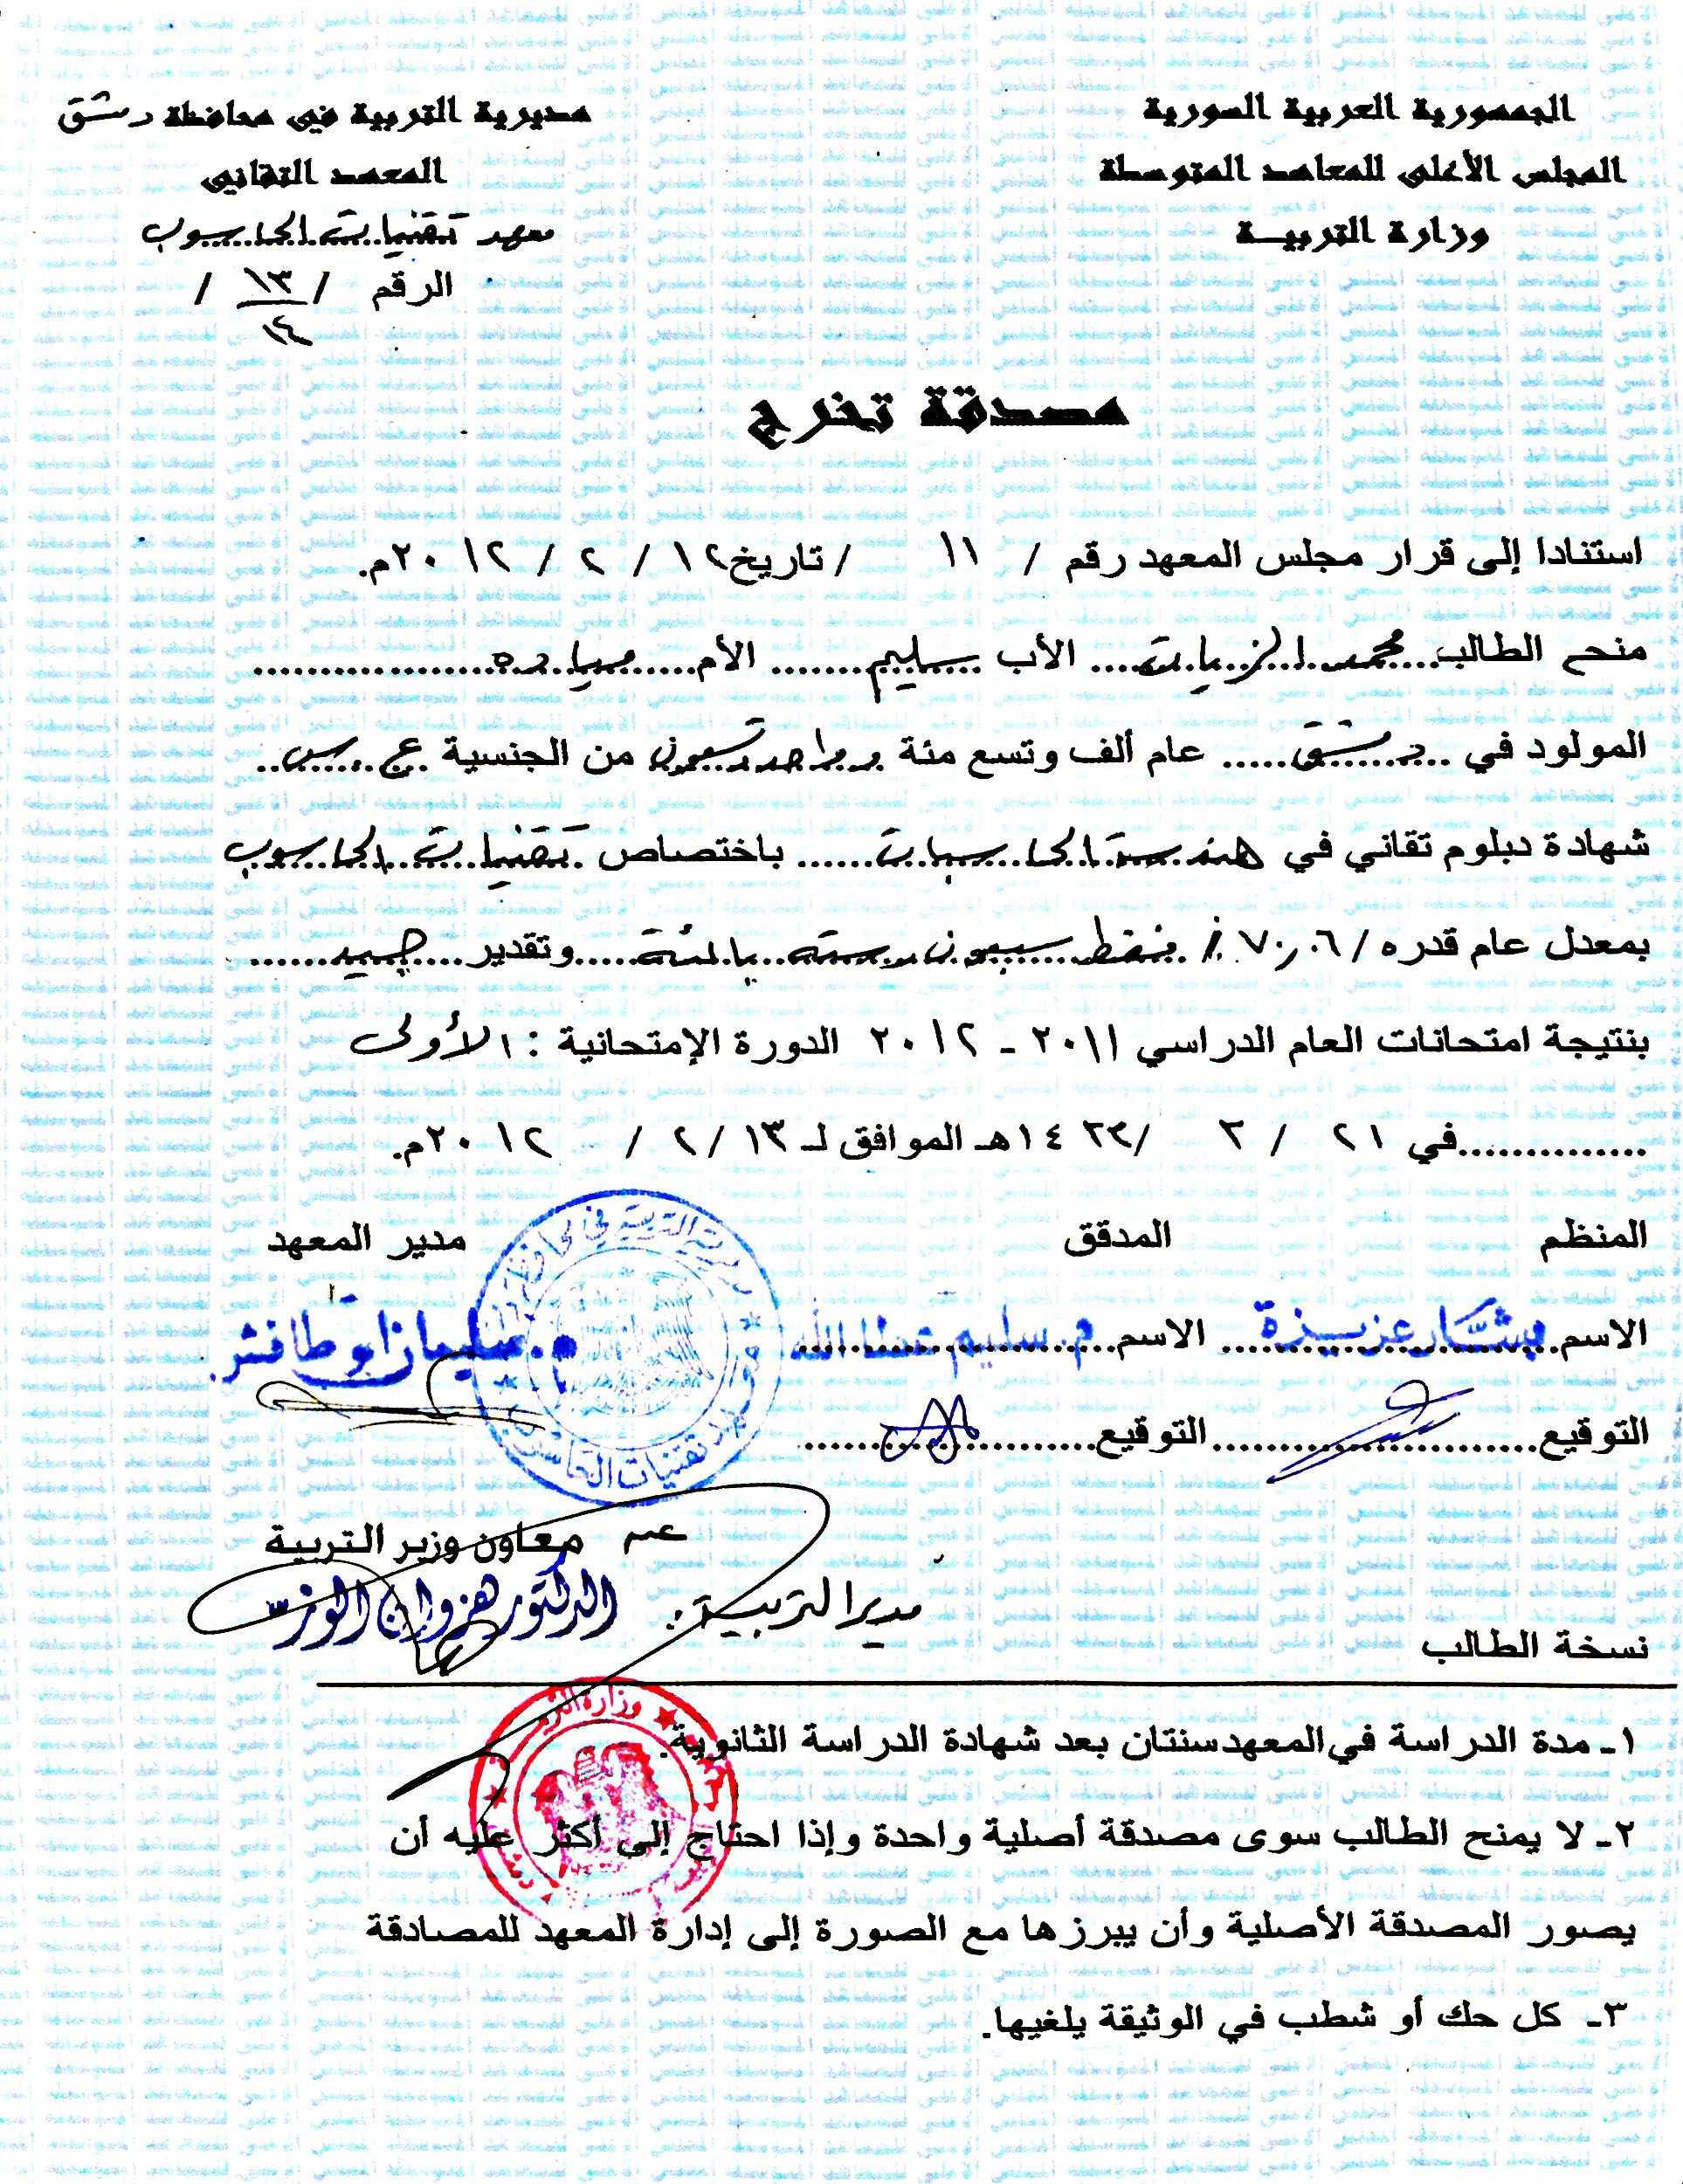 الجمهورية العربية السورية
المجلس الأعلى للمعاهد المتوسطة
وزارة التربيـة
مديرية التربية في محافظة دمشق
المعهد التقاني
معهد تقنيات الحاسوب
الرقم / ١٣/١٤ /
مصدقة تخرج
استنادا إلى قرار مجلس المعهد رقم / ١١ / تاريخ ١٢ / ٢ / ٢٠١٢م.
منح الطالب محمد الزيات الأب سليم الأم ميادة
المولود في دمشق عام ألف وتسع مئة و واحد تسعون من الجنسية ع.س
شهادة دبلوم تقاني في هندسة الحاسبات باختصاص تقنيات الحاسوب
بمعدل عام قدره / ٧٠,٠٦ % فقط سبعون وستة بالمئة وتقدير جيد
بنتيجة امتحانات العام الدراسي ٢٠١١ - ٢٠١٢ الدورة الإمتحانية : الأولى
في ٢١ / ٣ / ١٤٣٣هـ الموافق لـ ١٣ / ٢ / ٢٠١٢م.
المنظم المدقق مدير المعهد
الاسم بشار عزيزة الاسم م. سليم عطا الله م. سليمان ابو طافش
التوقيع التوقيع
معاون وزير التربية
مدير التربية: الدكتور هزوان الوز
نسخة الطالب
١- مدة الدراسة في المعهد سنتان بعد شهادة الدراسة الثانوية.
٢- لا يمنح الطالب سوى مصدقة أصلية واحدة وإذا احتاج إلى أكثر عليه أن
يصور المصدقة الأصلية وأن يبرزها مع الصورة إلى إدارة المعهد للمصادقة
٣- كل حك أو شطب في الوثيقة يلغيها.